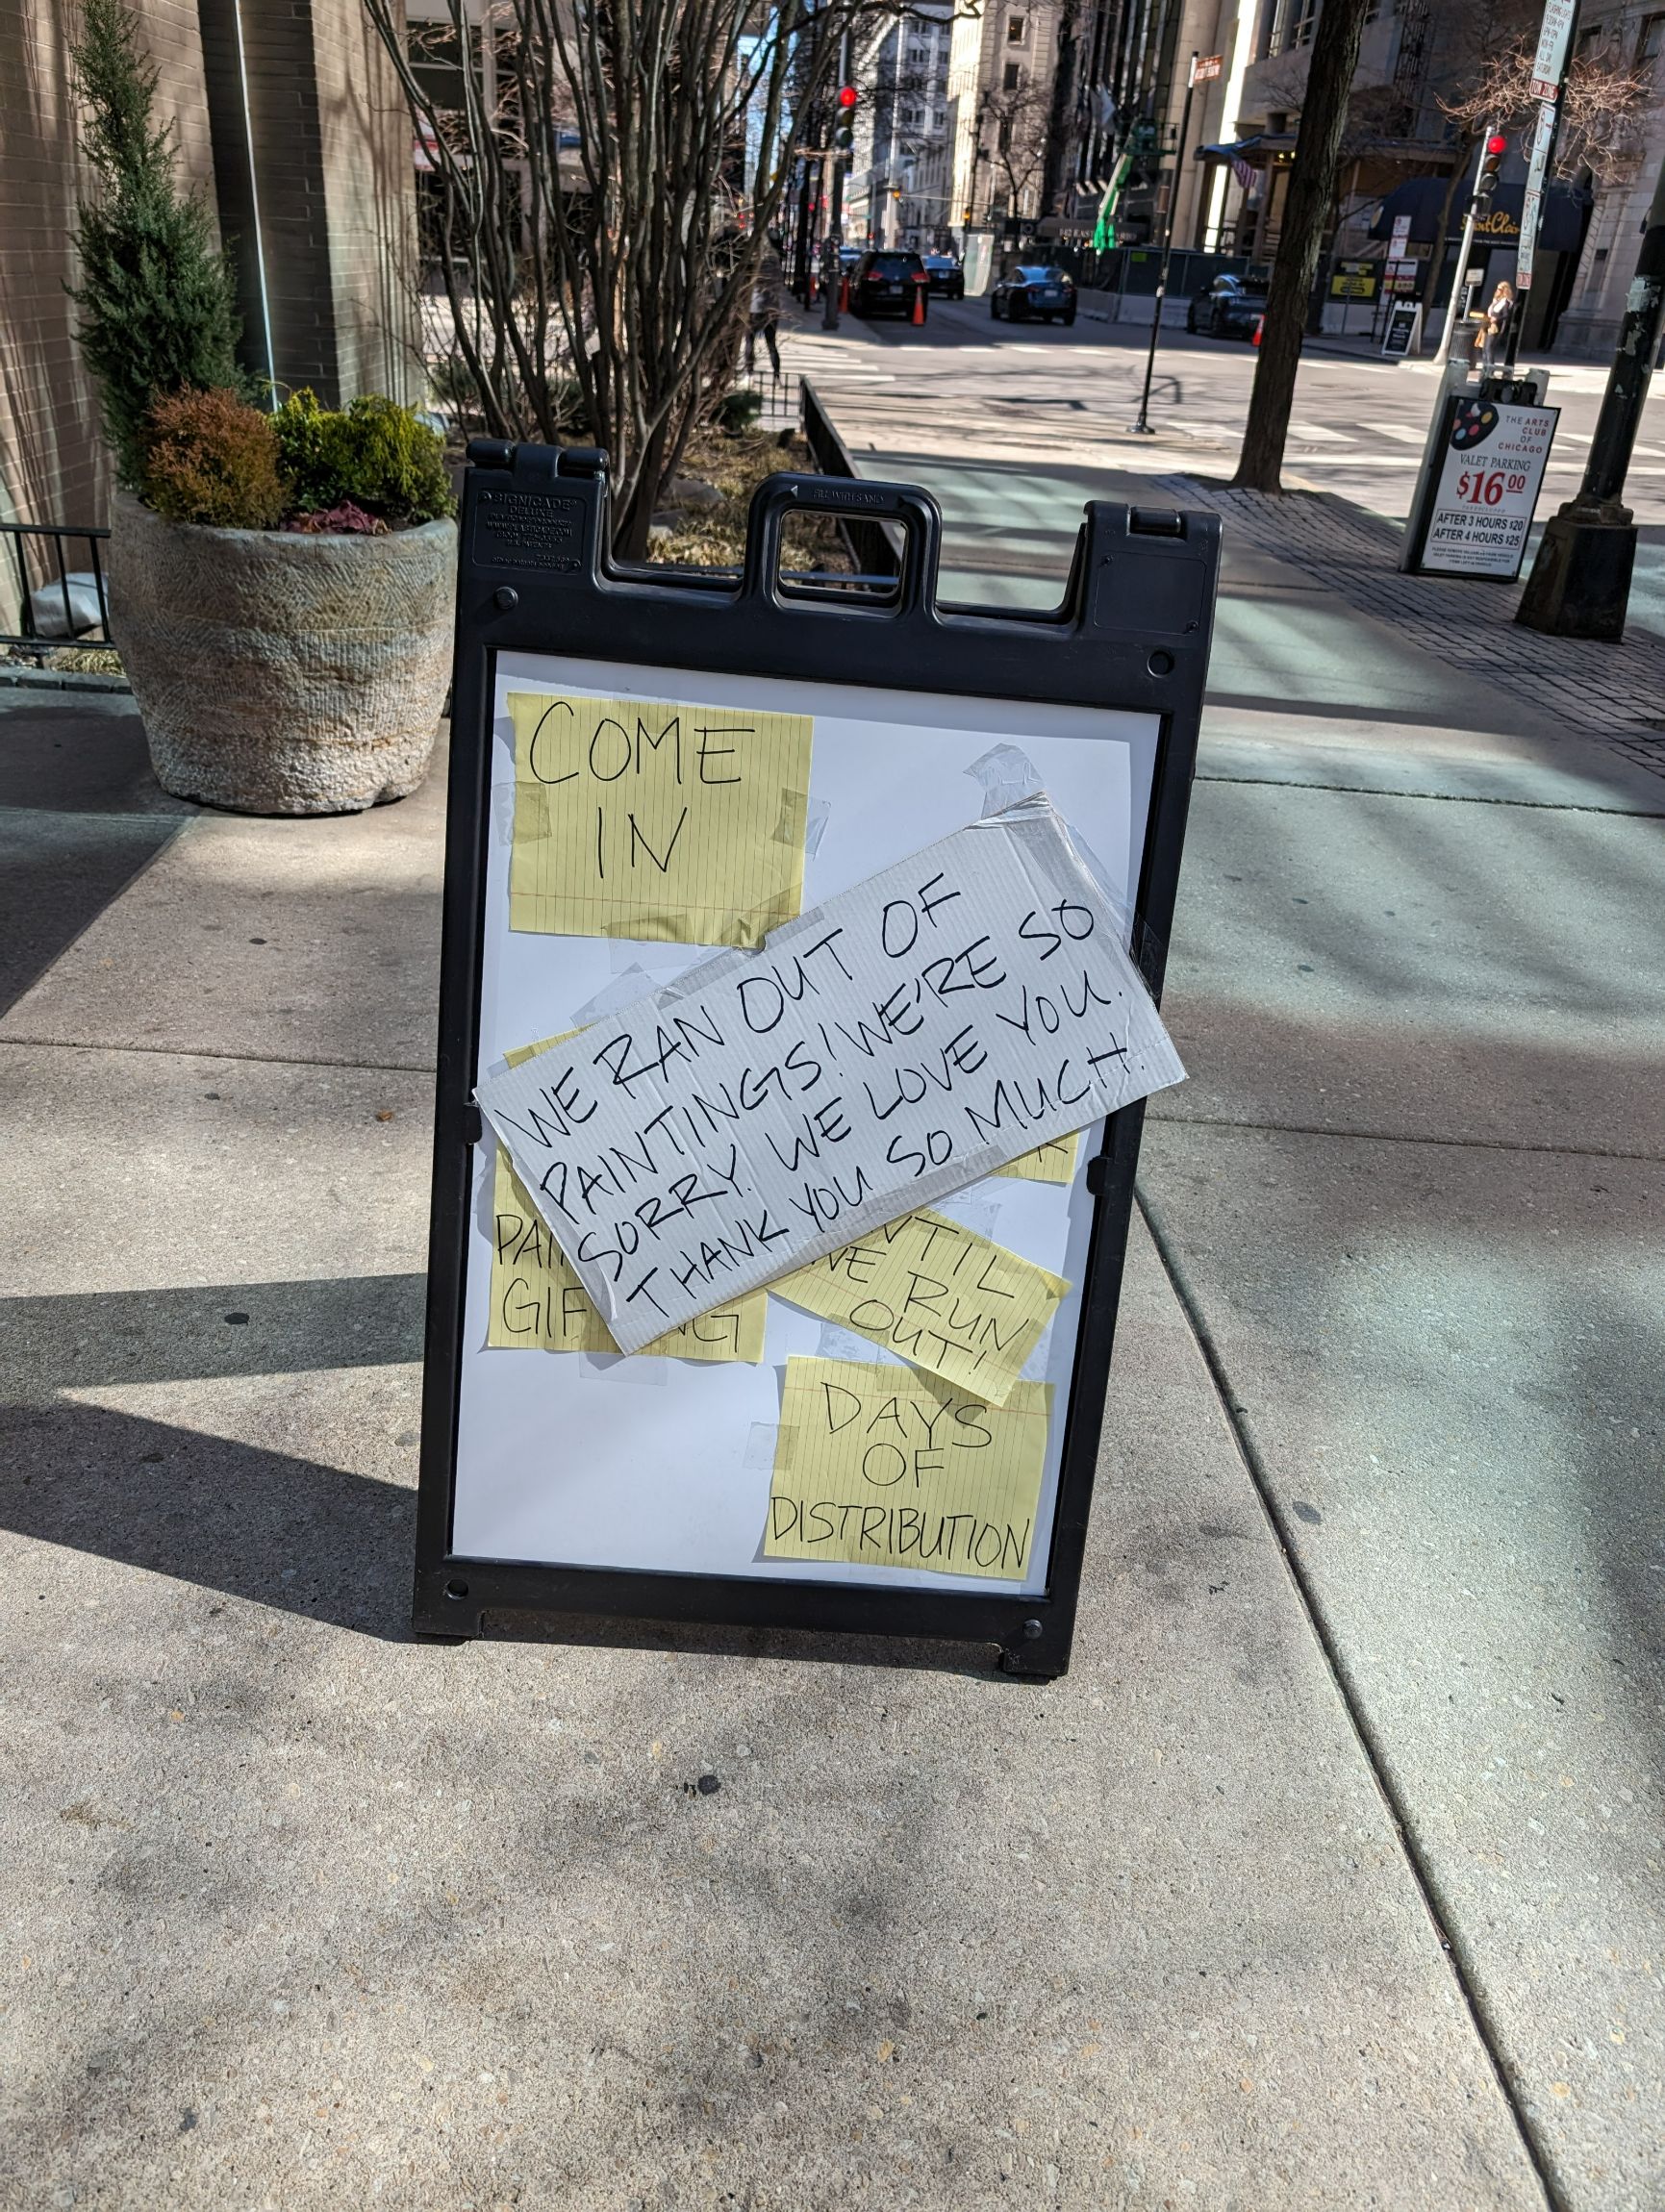 COME
IN
WE RAN OUT OF
PAINTINGS! WE'RE SO
SORRY. WE LOVE YOU.
THANK YOU SO MUCH.
RUN
OUT!
DAYS
OF
DISTRIBUTION
SIGNICADE
DELUXE
FILL WITH SAND
THE ARTS
CLUB
OF
CHICAGO
VALET PARKING
$16 00
AFTER 3 HOURS $20
AFTER 4 HOURS $25